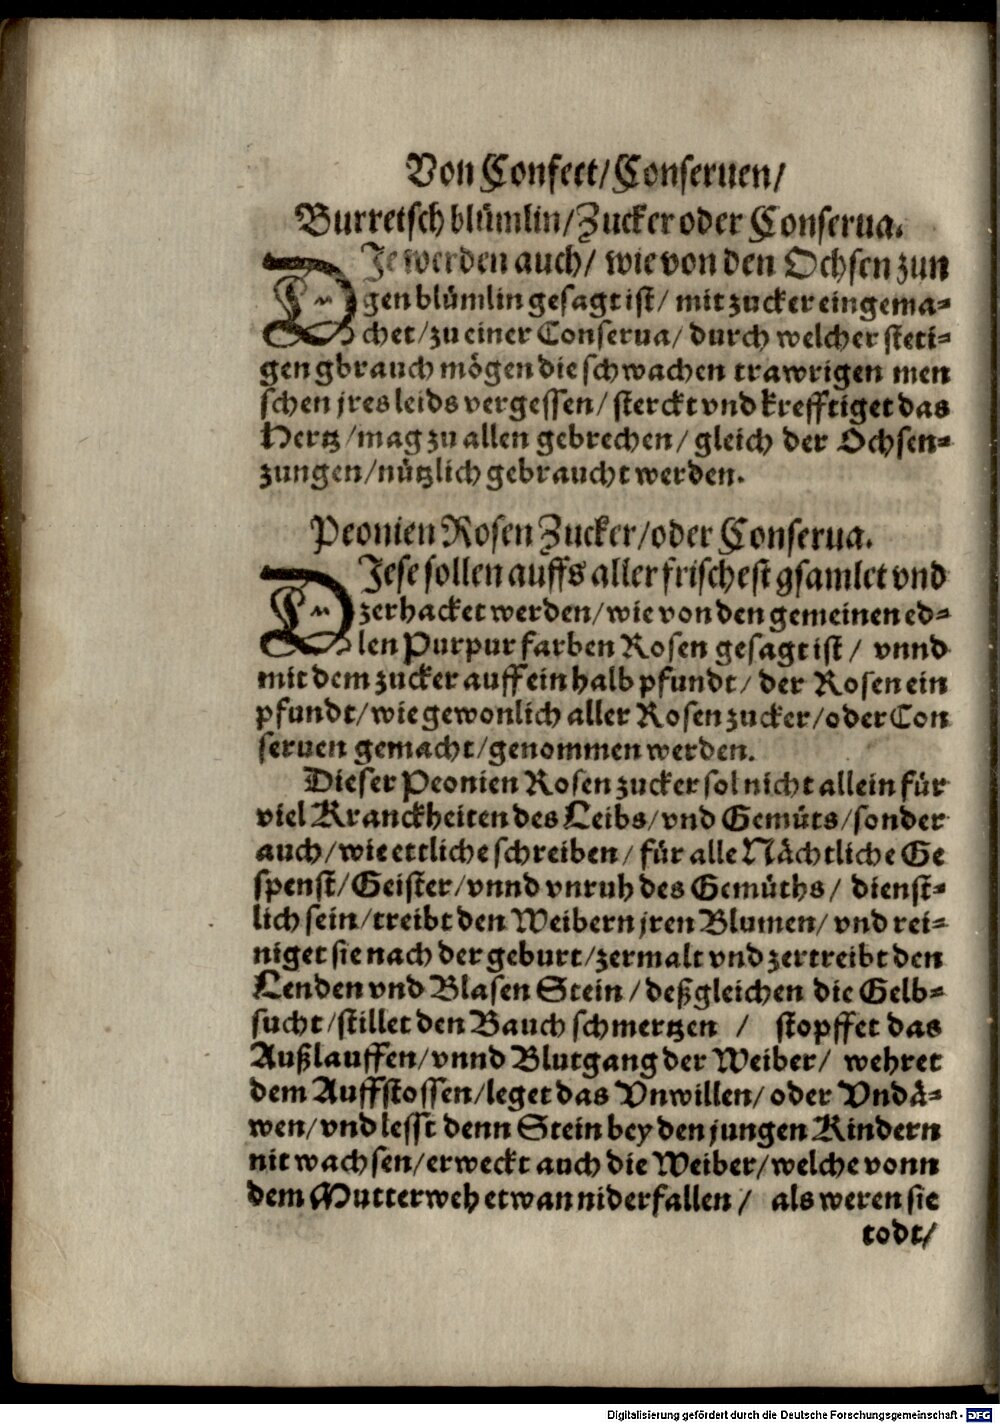 Von Confect/Conseruen/
Burretsch blümlin/Zucker oder Conserua.
DJe werden auch/ wie von den Ochsen zun
gen blümlin gesagt ist/ mit zucker eingema-
chet/zu einer Conserua/ durch welcher steti-
gen gbrauch mögen die schwachen trawrigen men
schen jres leids vergessen/ sterckt vnd krefftiget das
Hertz/mag zu allen gebrechen/ gleich der Ochsen-
zungen/nützlich gebraucht werden.
Peonien Rosen Zucker/oder Conserua.
DJese sollen auffs aller frischest gsamlet vnd
zerhacket werden/wie von den gemeinen ed-
len Purpur farben Rosen gesagt ist/ vnnd
mit dem zucker auff ein halb pfundt/ der Rosen ein
pfundt/wie gewonlich aller Rosen zucker/oder Con
seruen gemacht/genommen werden.
Dieser Peonien Rosen zucker sol nicht allein für
viel Kranckheiten des Leibs/vnd Gemüts/sonder
auch/wie ettliche schreiben/ für alle Nächtliche Ge
spenst/Geister/vnnd vnruh des Gemüths/ dienst-
lich sein/treibt den Weibern jren Blumen/ vnd rei-
niget sie nach der geburt/zermalt vnd zertreibt den
Lenden vnd Blasen Stein/deßgleichen die Gelb-
sucht/stillet den Bauch schmertzen / stopffet das
Außlauffen/vnnd Blutgang der Weiber/ wehret
dem Auffstossen/leget das Vnwillen/ oder Vndä-
wen/vnd lesst denn Stein bey den jungen Kindern
nit wachsen/erweckt auch die Weiber/welche vonn
dem Mutterweh etwan niderfallen/ als weren sie
todt/
Digitalisierung gefördert durch die Deutsche Forschungsgemeinschaft - DFG